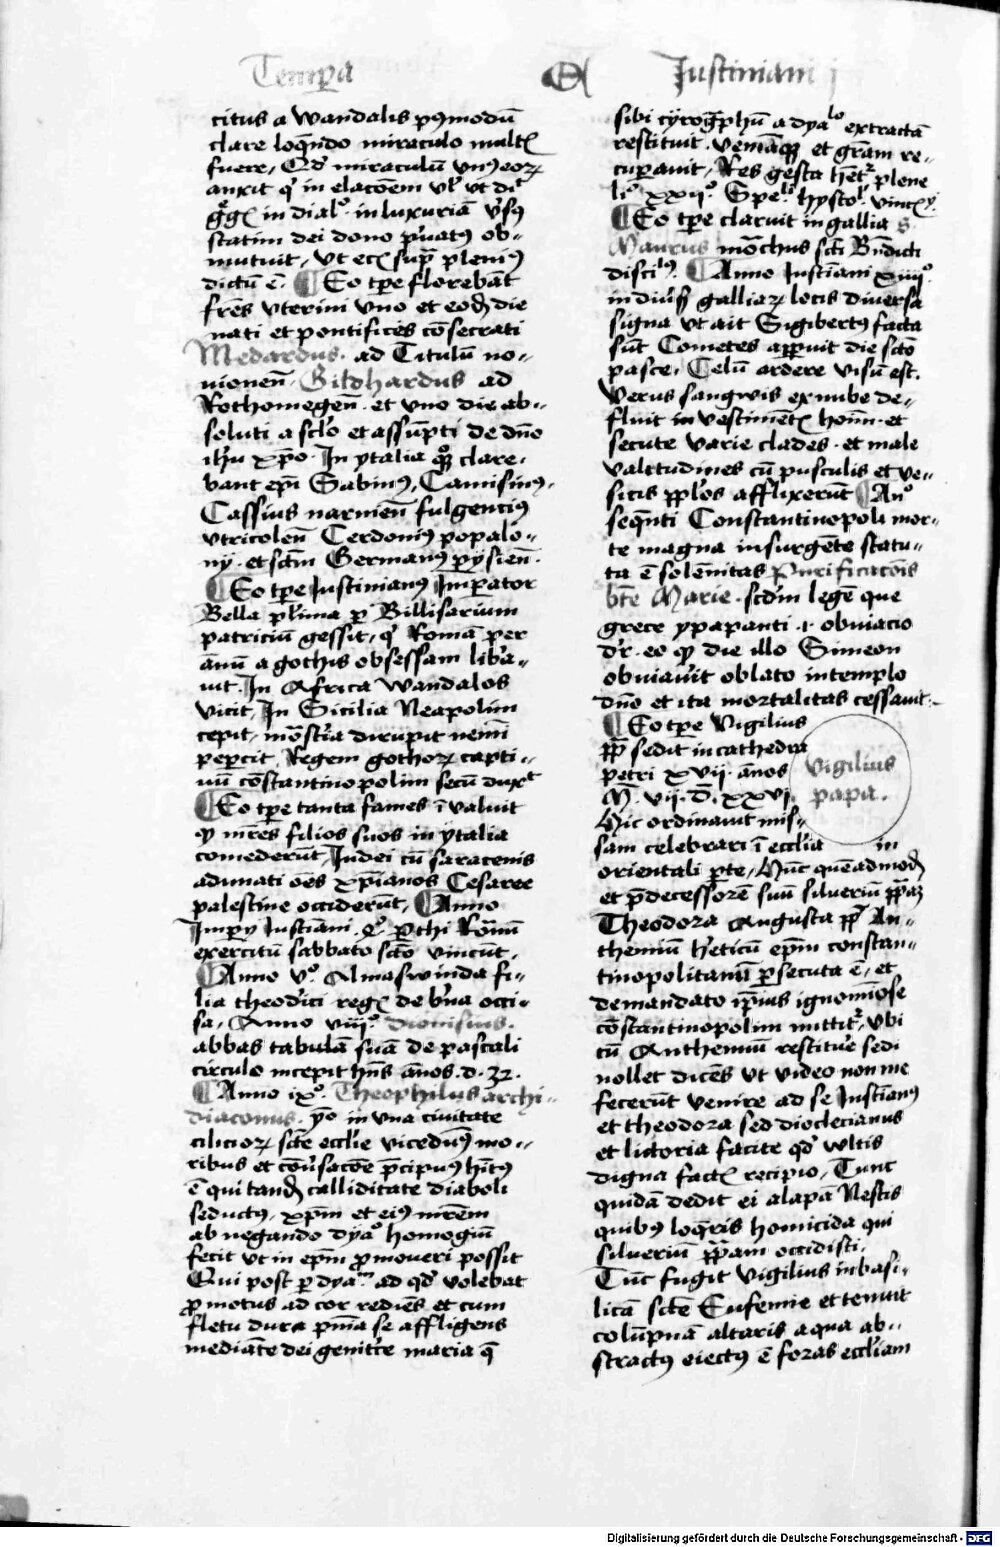 Temp̄a
Justiniani j
citus a Wandalis p9modū
clare loq̄ndo miraculo multꝭ
fuere, Qd' miraculū vn9 eoꝝ
auxit q' in elacōem vꝉ vt dit
g̊gꝭ in dial.º in luxuriā v'sus
statim dei dono p'uatꝰ ob-
mutuit, vt ecꝭ sup̄ pleniꝰ
dictū ē. Eo tꝑe florebāt
fr̄es vterini vno et eodē die
nati et pontifices cōsecrati
Medardus. ad Titulū no-
uionen̄. Gildhardus ad
Rothomegen̄. et vno die ab-
soluti a sc̄lo et assūpti de dn̄o
ihū xp̄o. In ytalia qꝫ clare-
bant ep̄i Sabinꝰ, Camisinꝰ,
Cassius narnien̄ fulgenciꝰ
vtricolen̄ Cerdoniꝰ popalo-
nij. et sc̄m Germanꝰ pysien̄.
Eo tꝑe Justinianꝰ Imꝑator
Bella pl'ima ꝑ Billisarium
patriciū gessit, q' Romā per
ānū a gothis obsessam lib'a-
uit. In Africa Wandalos
vicit, In Sicilia Neapolim
cepit, mōst'ia dirupit nemī
peꝑcit, Regem gothoꝝ capti-
uū cōstantinopolim secū duxt
Eo tꝑe tanta fames ī valuit
qꝫ mr̄es filios suos in ytalia
comederūt, Judei cū saracenis
adunati oēs xp̄ianos Cesaree
palestine occiderūt, Anno
Impij Justiani .qº. ꝑthi Romū
exercitū sabbato sc̄to vincūt,
Anno vº. Almaswinda fi-
lia theod'ici regꝭ de b'na occi-
sa, Anno viiiº. dionisius.
abbas tabulā suā de pascali
circulo incepit hn̄s ānos .d. 32.
Anno ixº. Theophilus archi-
diaconus. yº in vna ciuitate
cilicioꝝ sc̄te eccl'ie vicedn̄ꝰ mo-
ribus et cōu'sacōe p̄cipuꝰ hītꝰ
ē qui tandē calliditate diaboli
seductꝰ, xp̄m et eiꝰ mr̄em
abnegando dyaº homogiū
fecit vt in ep̄m ꝓmoueri possit
Qui post ꝑ dyaᵐ ad qd' volebat
ꝓmotus ad cor rediēs et cum
fletu dura pn̄ia se affligens
mediāte dei genit'ce maria q̄
sibi cyrogͣphū a dyalo extractā
restituit. veniāqꝫ et grām re-
cuꝑauit, Res gesta hēt' plene
liº xxiiº. Spe.li hystol. vincꝭ ꝫ.
Eo tꝑe claruit in gallia S
Maurus mōchus sct̄i Bn̄dicti
disciꝉꝰ. Anno Justiani xiiijº.
in diu'sꝭ galliaꝝ locis diuersa
signa vt ait Sigibertꝰ facta
sūt Cometes apꝑuit die sc̄to
pasce, Celū ardere visū est.
Verus sangwis ex nube de-
fluit in vestimētꝭ hoīm. et
secute varie clades. et male
valitudines cū pusculis et ve-
sicis pp̄l'os afflixerūt Anº
seq̄nti Constantinopoli mor-
te magna insurgēte statu-
ta ē solēnitas Purificacōis
bt̄e Marie. scd̄m legē que
grece ypapanti .i. obuiacio
dr̄. eo qꝫ die illo Simeon
obuiauit oblato in templo
dn̄o et ita mortalitas cessauit.
Eo tꝑe Vigilius
pp̄ sedit in cathedra
petri xvij. ānos
M̄. vij. D̄. xxvi.
Hic ordinauit mis-
sam celebrari ī eccl'ia in
orientali ꝑte, Hūc quēadmodū
et p̄decessorē suū siluerū pp̄aꝫ
Theodora Augusta pp̄ An-
themiū h'eticū ep̄m constan-
tinopolitanū ꝑsecuta ē, et
de mandato ip̄ius ignomiōse
cōstantinopolim mittit', vbi
cū Anthemiū restitu'e sedi
nollet dicēs vt video non me
fecerūt venire ad se Justianꝰ
et theodora sed dioclecianus
et lictoria facite qd' wltis
digna factꝭ recipio, Tunc
quidā dedit ei alapā Nescis
quibꝰ loq̄ris homicida qui
siluerū pp̄am occidisti.
Tūc fugit Vigilius in basi-
licā sc̄te Eufemie et tenuit
colūpnā altaris a qua ab-
stractꝰ eiectꝰ ē foras eccl'iam
vigilius
papa.
Digitalisierung gefördert durch die Deutsche Forschungsgemeinschaft - DFG